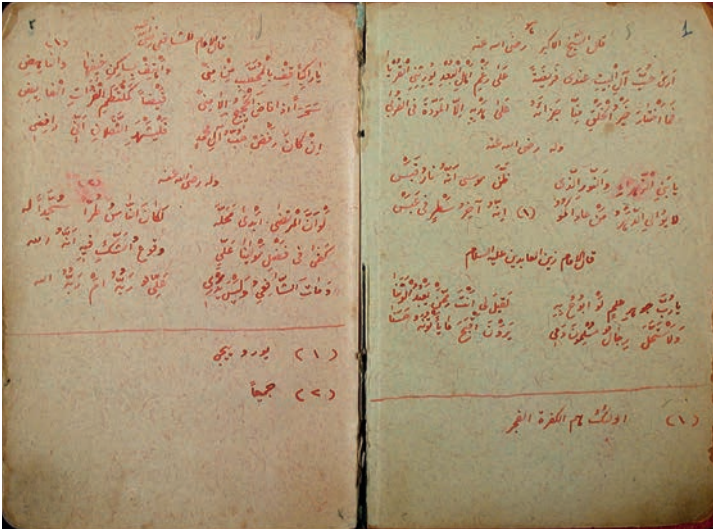 1
قال الشيخ الاكبر رضى الله عنه
ارى حب آل البيت عندى فريضة على رغم اهل البعد يورثنى القربا
فما اختار خير الخلق منا جزاءه على هديه الا المودة فى القربى
وله رضى الله عنه
يا بنى الزهراء والنور الذى ظن موسى انه نار قبس
لا يوالى الدهر من عاداكمو (١) انه آخر سطر فى عبس
قال الامام زين العابدين عليه السلام
يا رب جوهر علم لو ابوح به لقيل لى انت ممن يعبد الوثنا
ولاستحل رجال مسلمون دمى يرون اقبح ما يأتونه حسنا
(١) اولئك هم الكفرة الفجر
٢
قال الامام الشافعى رضى الله عنه
يا راكبا قف بالمحصب من منى واهتف بساكن خيفها والناهض (١)
سحرا اذا فاض الحجيج الى منى فيضا كملتطم الفرات الفايض
ان كان رفض حب آل محمد فليشهد الثقلان انى رافضى
وله رضى الله عنه
لو ان المرتضى ابدى محله لكان الناس طرا (٢) سجدا له
كفى فى فضل مولانا على وقوع الشك فيه انه الله
ومات الشافعى وليس يدرى على ربه ام ربه الله
(١) يورو بيجى
(٢) جميعا